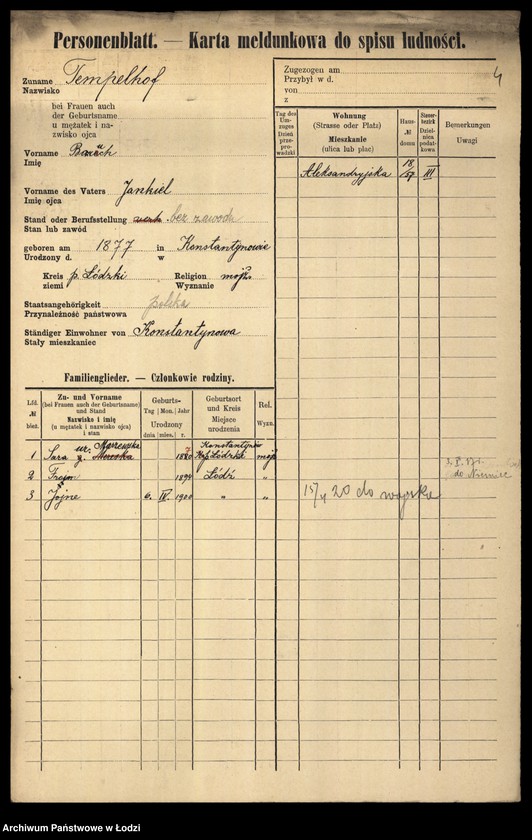 Personenblatt. — Karta meldunkowa do spisu ludności.
4
Zuname Tempelhof
Nazwisko
bei Frauen auch
der Geburtsname
u mężatek i na-
zwisko ojca
Vorname Boruch
Imię
Vorname des Vaters Jankiel
Imię ojca
Stand oder Berufsstellung bez zawodu
Stan lub zawód
geboren am 1877 in Konstantynowie
Urodzony d. w
Kreis p. Łódzki Religion mojż.
ziemi Wyznanie
Staatsangehörigkeit polska
Przynależność państwowa
Ständiger Einwohner von Konstantynowa
Stały mieszkaniec
Zugezogen am
Przybył w d.
von
z
Tag des Um-zuges Dzień prze-prowadzki
Wohnung (Strasse oder Platz) Mieszkanie (ulica lub plac)
Haus-№ domu
Steuer-bezirk Dzielnica podatkowa
Bemerkungen Uwagi
Aleksandryjska 18/57 III
Familienglieder. — Członkowie rodziny.
Lfd. № bież.
Zu- und Vorname (bei Frauen auch der Geburtsname) und Stand Nazwisko i imię (u mężatek i nazwisko ojca) i stan
Geburts- Tag Mon. Jahr Urodzony dnia mies. r.
Geburtsort und Kreis Miejsce urodzenia
Rel. Wyzn.
1 Sara ur. Moroszka 1880 Konstantynów p. Łódzki mojż
2 1894 Łódź "
3 Jojne 6. IV. 1900 " "
do Niemiec
15/4 20 do wojska
Archiwum Państwowe w Łodzi